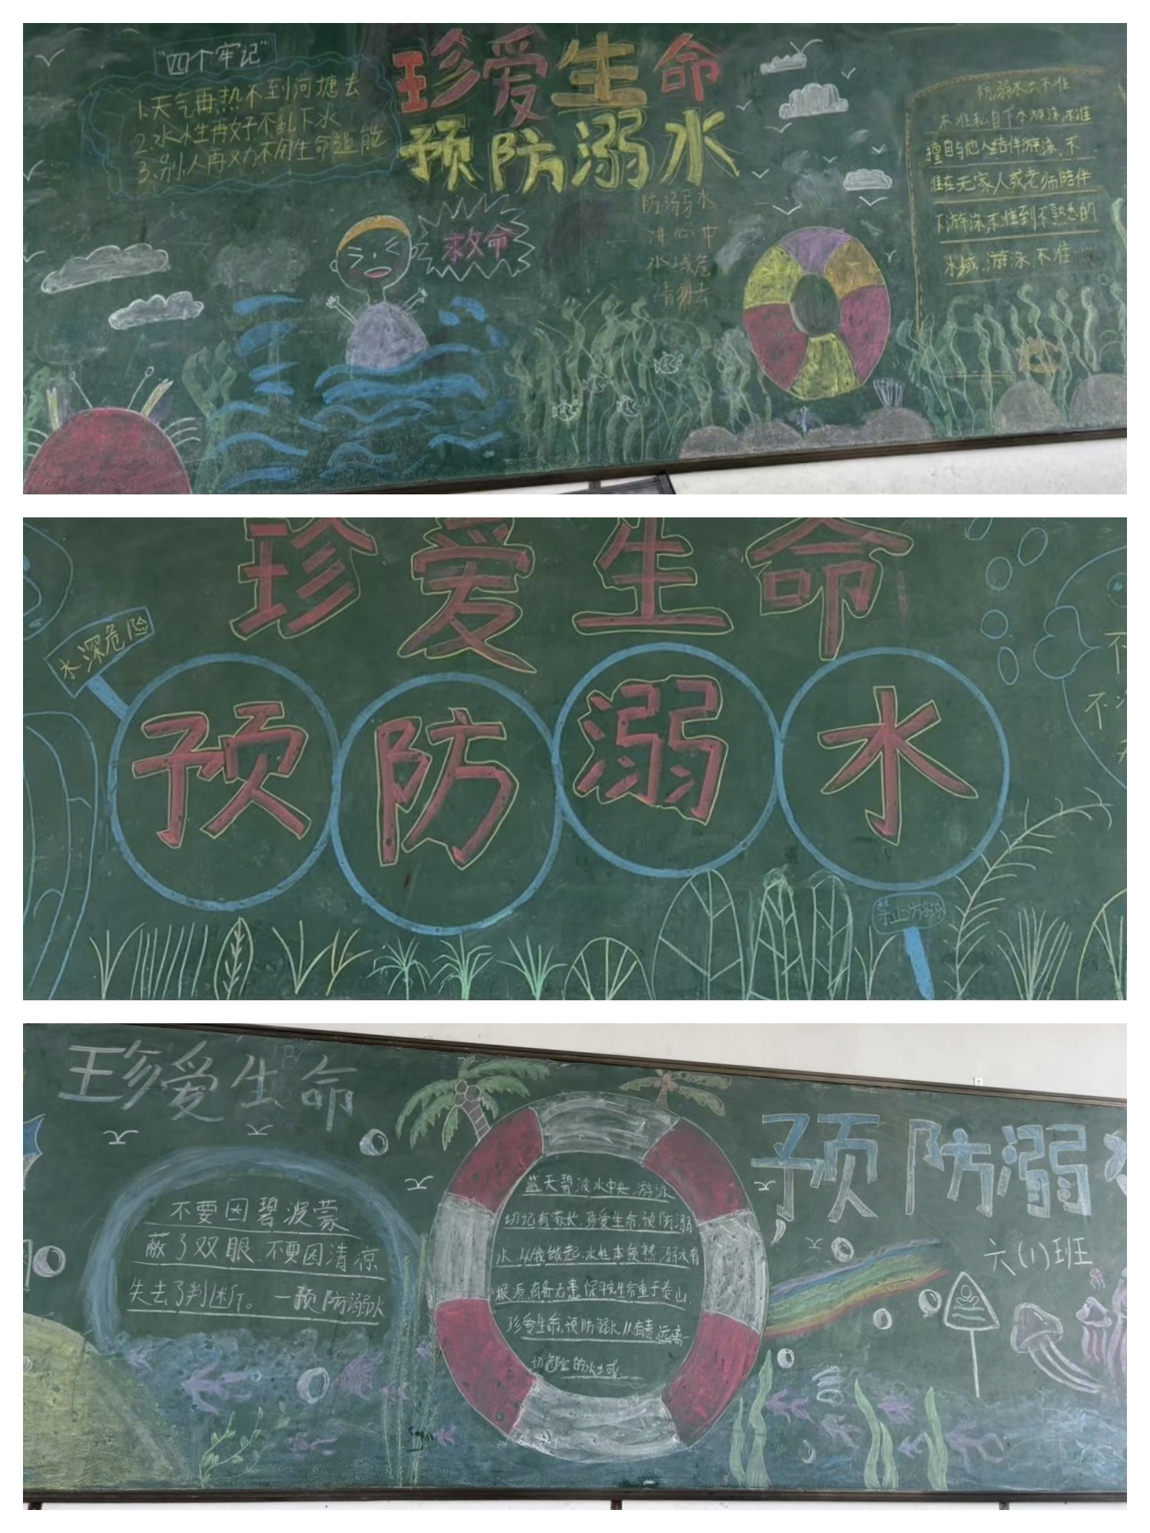 "四个牢记"
1.天气再热不到河塘去
2.水性再好不乱下水
3.别人再劝不用生命逞能
珍爱生命
预防溺水
救命
防溺水
水浅危
请勿去
防溺水六不准
不准私自下水游泳不准
擅自与他人结伴游泳,不
准在无家人或老师陪伴
下游泳不准到不熟悉的
水域游泳不准
珍爱生命
水深危险
预防溺水
禁止游泳
珍爱生命
不要因碧波蒙
蔽了双眼,不要因清凉
失去了判断。一预防溺水
蓝天碧波水中央,游泳
切记有家长,珍爱生命,预防溺
水,从我做起,水性本无熟,溺水有
根源,有备无患,保平安生命重于泰山
珍爱生命,预防溺水,人有责,远离一
切危险的水域
预防溺水
六(1)班